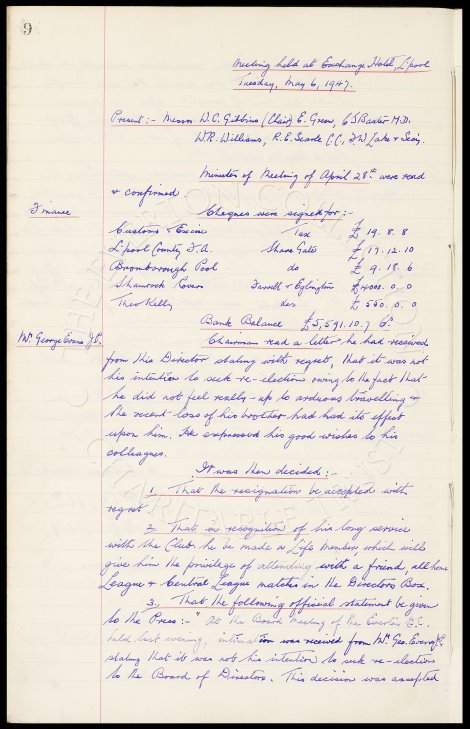 9
Meeting held at Exchange Hotel, L'pool
Tuesday, May 6, 1947.
Present :- Messrs W.C. Gibbins (Chair) E. Green, C S Baxter M.D.
W.R. Williams, R.E. Searle C.C., & Secy.
Minutes of Meeting of April 28th were read
& confirmed
Finance Cheques were signed for :-
Customs & Excise Tax £ 19. 8. 8
L'pool County F.A. Share Gate £ 17. 12. 10
Bromborough Pool do £ 9. 18. 6
Shamrock Rovers Farrell & Eglington £ 4000. 0. 0
Theo Kelly des £ 550. 0. 0
Bank Balance £5,591. 10. 7 Cr.
Mr. George Evans J.P. Chairman read a letter he had received
from this Director stating with regret, that it was not
his intention to seek re-election owing to the fact that
he did not feel really up to arduous travelling &
the recent loss of his brother had had its effect
upon him. He expressed his good wishes to his
colleagues.
It was then decided :-
1. That the resignation be accepted with
regret.
2. That in recognition of his long service
with the Club he be made a Life Member, which will
give him the privilege of attending with a friend, all home
League & Central League matches in the Directors Box.
3. That the following official statement be given
to the Press :- "At the Board Meeting of the Everton F.C.
held last evening, intimation was received from Mr. Geo. Evans J.P.,
stating that it was not his intention to seek re-election
to the Board of Directors. This decision was accepted